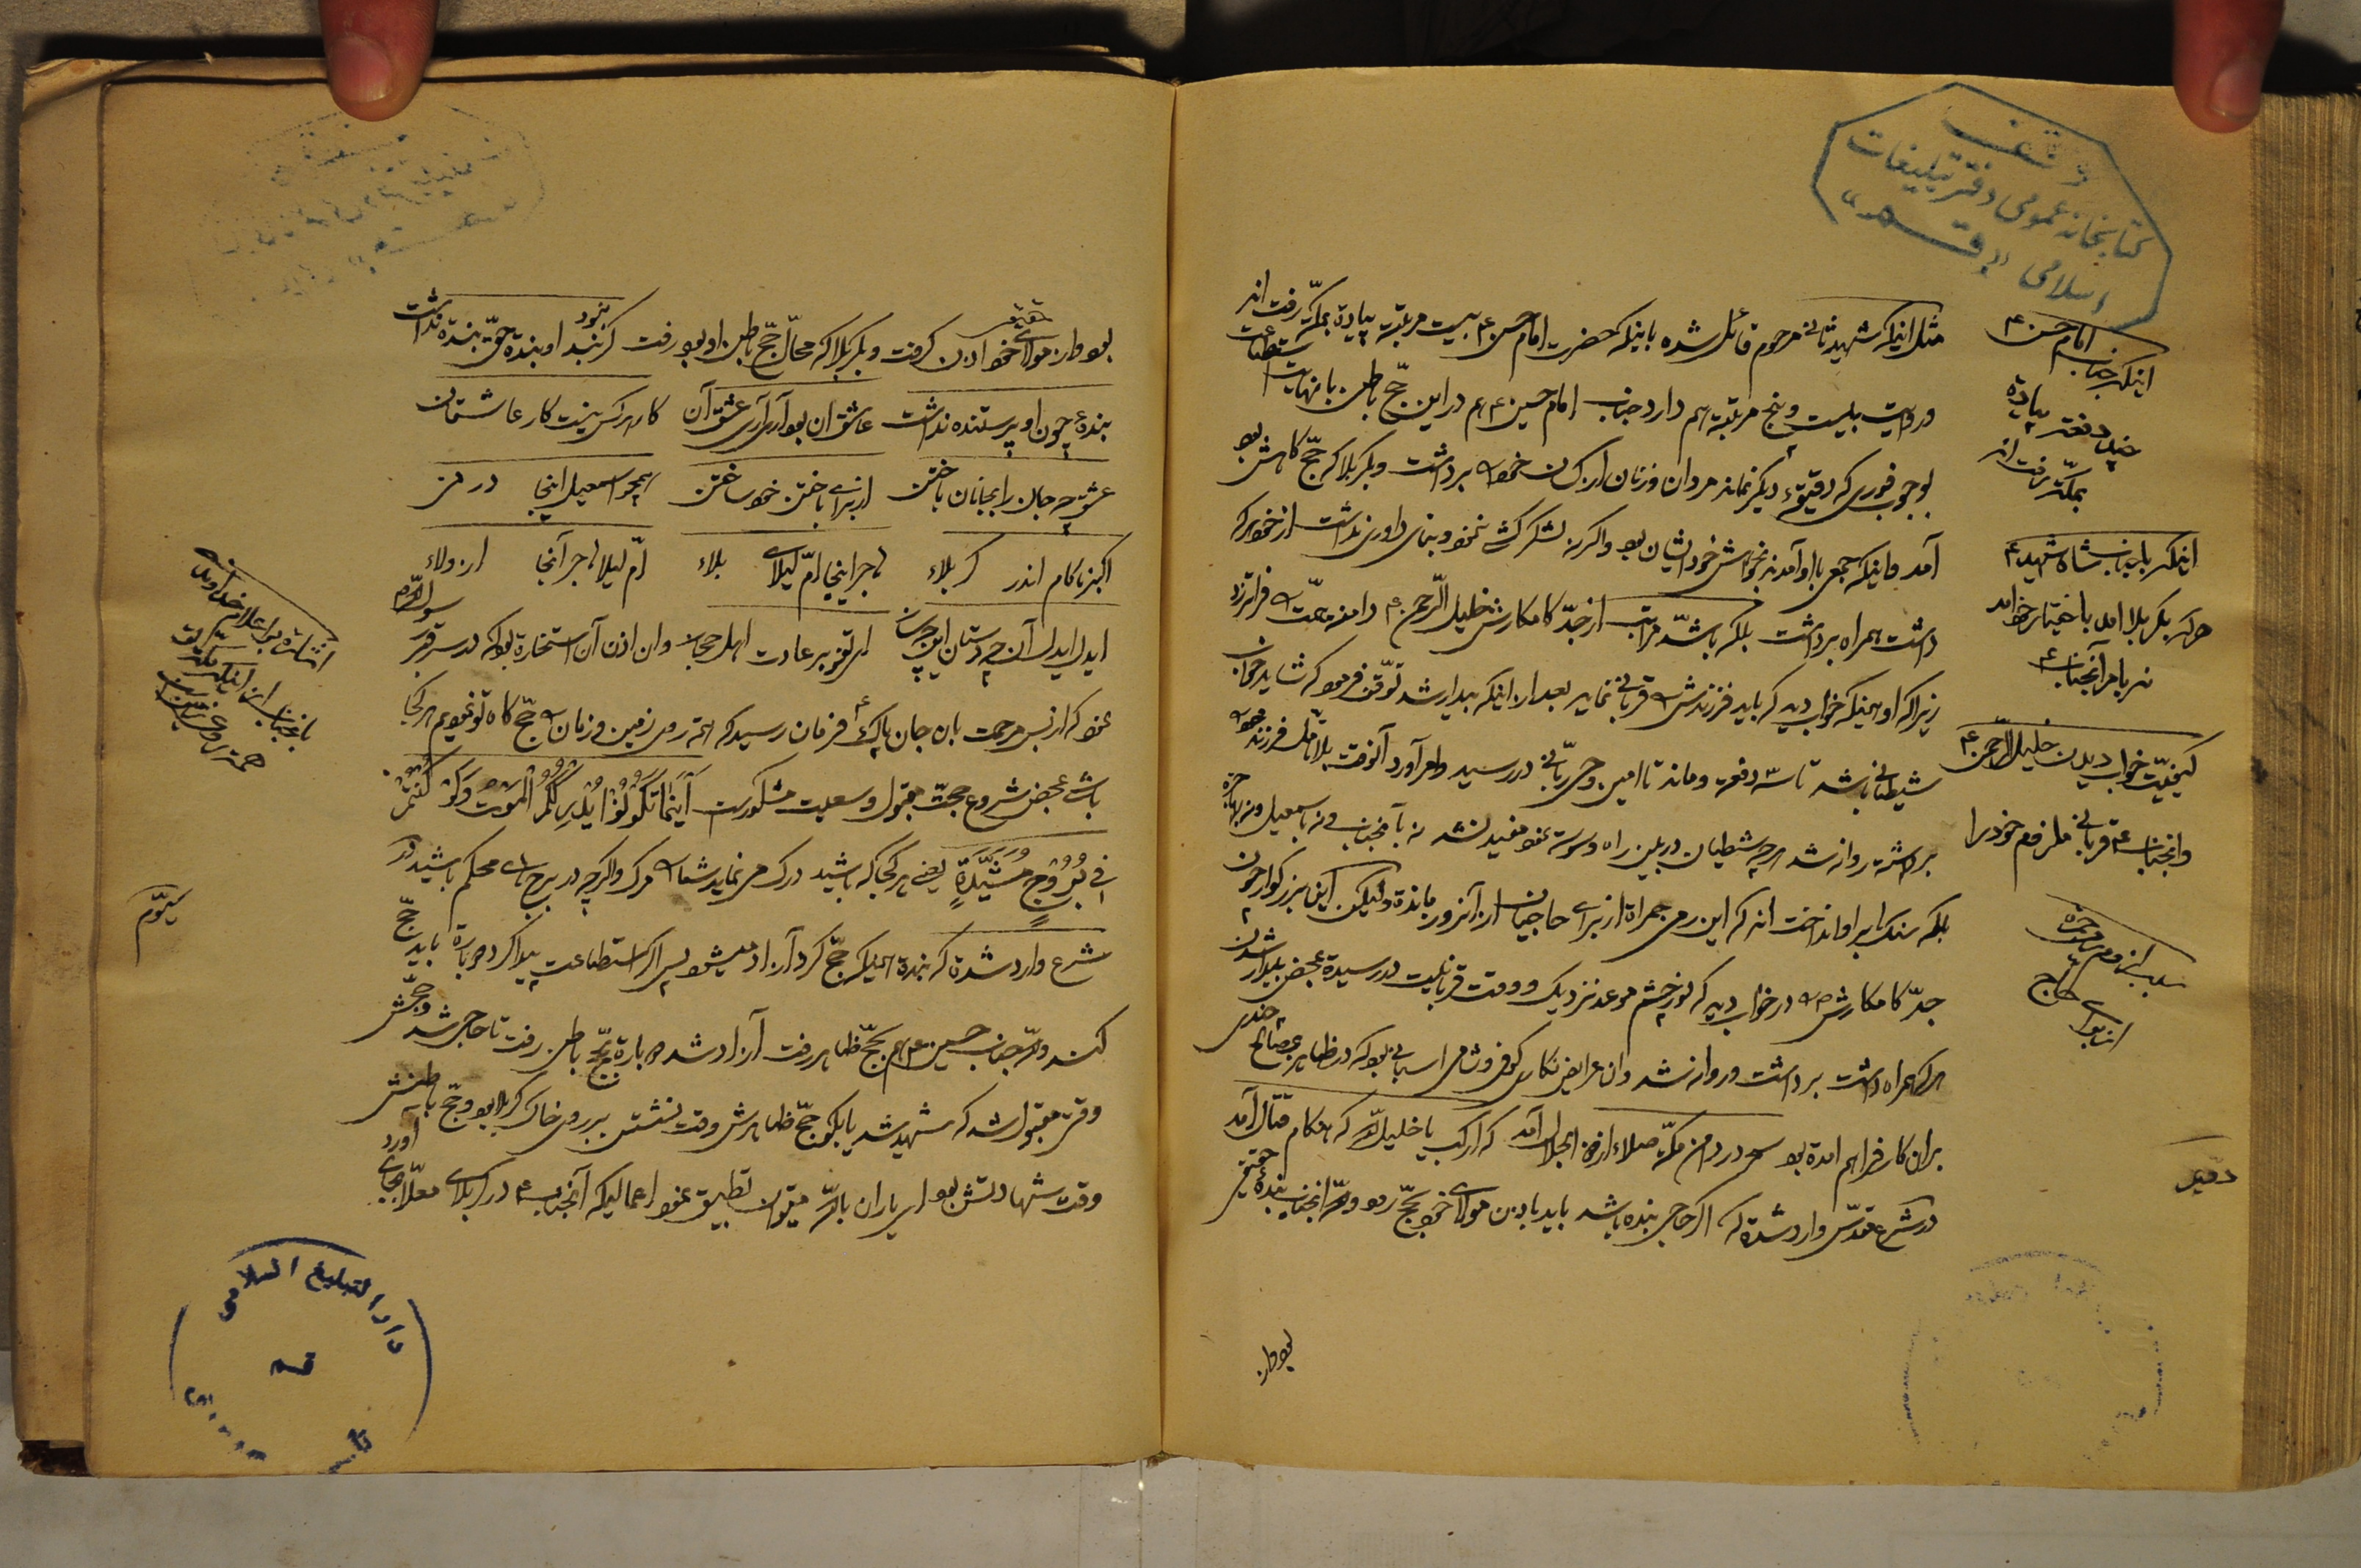 وقف
کتابخانه عمومی دفتر تبلیغات
اسلامی «قم»
مثل اینکه شهید ثانی مرحوم قائل شده باینکه حضرت امام حسن ع بیست مرتبه پیاده بمکّه رفته‌اند
روایت بیست و پنج مرتبه هم دارد جناب امام حسین ع هم در این حجّ باطن با نهایت استطاعت
بوجوب فوری که دقیقه دیگر نماند مردان و زنان از کسان خود برداشت و بکربلا که حجّ گاهش بود
آمد و اینکه جمعی با او آمدند بخواهش خود ایشان بود و اگر نه لشکر کشی ننمود و بنای داوری نداشت از خود هر که
داشت همراه برداشت بلکه باشدّ مراتب از جدّ کامکارش خلیل الرّحمن ع دامن همّت فراتر زد
زیرا که او همینکه خواب دید که باید فرزندش را قربانی نماید بعد از اینکه بیدار شد توقّف فرمود که شاید خواب
شیطانی باشد تا سه دفعه و ماند تا امین وحی ربّانی در رسید و امر آورد آنوقت بلا تأمّل فرزند خود
برداشته روانه شد هر چه شیطان در بین راه وسوسه نمود مفید نشد نه بآنجناب و نه باسمعیل و نه بهاجره
بلکه سنگ بر او انداختند که این رمی جمراه از برای حاجیان از آنروز مانده ولیکن این بزرگوار چون
جدّ کامکارش را در خواب دید که نور چشم موعد نزدیک و وقت قربانیت در رسیده بمحض بیدار شدن
هر که همراه داشت برداشت و روانه شد و آن عرایض نگاری کوفی و شامی اسبابی بود که در ظاهر بمصالح چندی
بر آن کار فراهم آمده بود در دامن مکّه صلاء از قرب الجلال آمد که ارکب یا خلیل الله که هنگام قتال آمد
در شرع مقدّس وارد شده که اگر حاجی بنده باشد باید باذن مولای خود بحجّ رود والله آنجناب بنده حقیقی
بود و از
امام حسن ع
اینکه جناب
چند دفعه پیاده
بمکّه رفته‌اند
اینکه با جناب شاه شهید ع
هر که بکربلا آمد باختیار خود آمد
نه بامر آنجناب ع
کیفیّت خواب دیدن خلیل الرّحمن ع
و آنجناب ع قربانی فرزند خود را
سبب رمی جمره
از برای حاج
دویّم
بود و از مولای حقیقی خود اذن گرفت و بکربلا که محلّ حجّ باطن او بود رفت گر نبد او بنده حقّ بنده نداشت
بنده چون او پرستنده نداشت عاشق آن بود آری آری عشق آن کار هر کس نیست کار عاشقان
عشق چه جان را بجانان باختن از برای باختن خود ساختن همچو اسمعیل اینجا در منی
اکبر ناکام اندر کربلاء هاجر اینجا امّ لیلای بلاء امّ لیلا هاجر آنجا از ولاء
نمود که از بس مرحمت بآن جان پاک فرمان رسید که همه روی زمین و زمان را حجّ گاه تو نمودیم هر کجا
باشی بمحض شروع حجّت مقبول و سعیت مشکور است أَیْنَمَا تَکُونُوا یُدْرِکْکُمُ الْمَوْتُ وَلَوْ کُنْتُمْ
فِی بُرُوجٍ مُشَیَّدَةٍ یعنی هر کجا که باشید درک می‌نماید شما را مرگ و اگر چه در برج های محکم باشید در
شرع وارد شده که بنده همینکه حجّ کرد آزاد میشود پس اگر استطاعت پیدا کرد دوباره باید حجّ
کند والله جناب حسین ع هم بحجّ ظاهر رفت آزاد شد دوباره بحجّ باطن رفت تا حاجی شد و حجّش
وقتی مقبول شد که شهید شد یا بگو حجّ ظاهرش وقت نشستن بر روی خاک کربلا بود و حجّ باطنش
وقت شهادتش بود ای یاران بالله میتوان تطبیق نمود اعمالیکه آنجناب ع در کربلای معلّا بجای آورد
سیّوم
دار التبلیغ اسلامی
قم